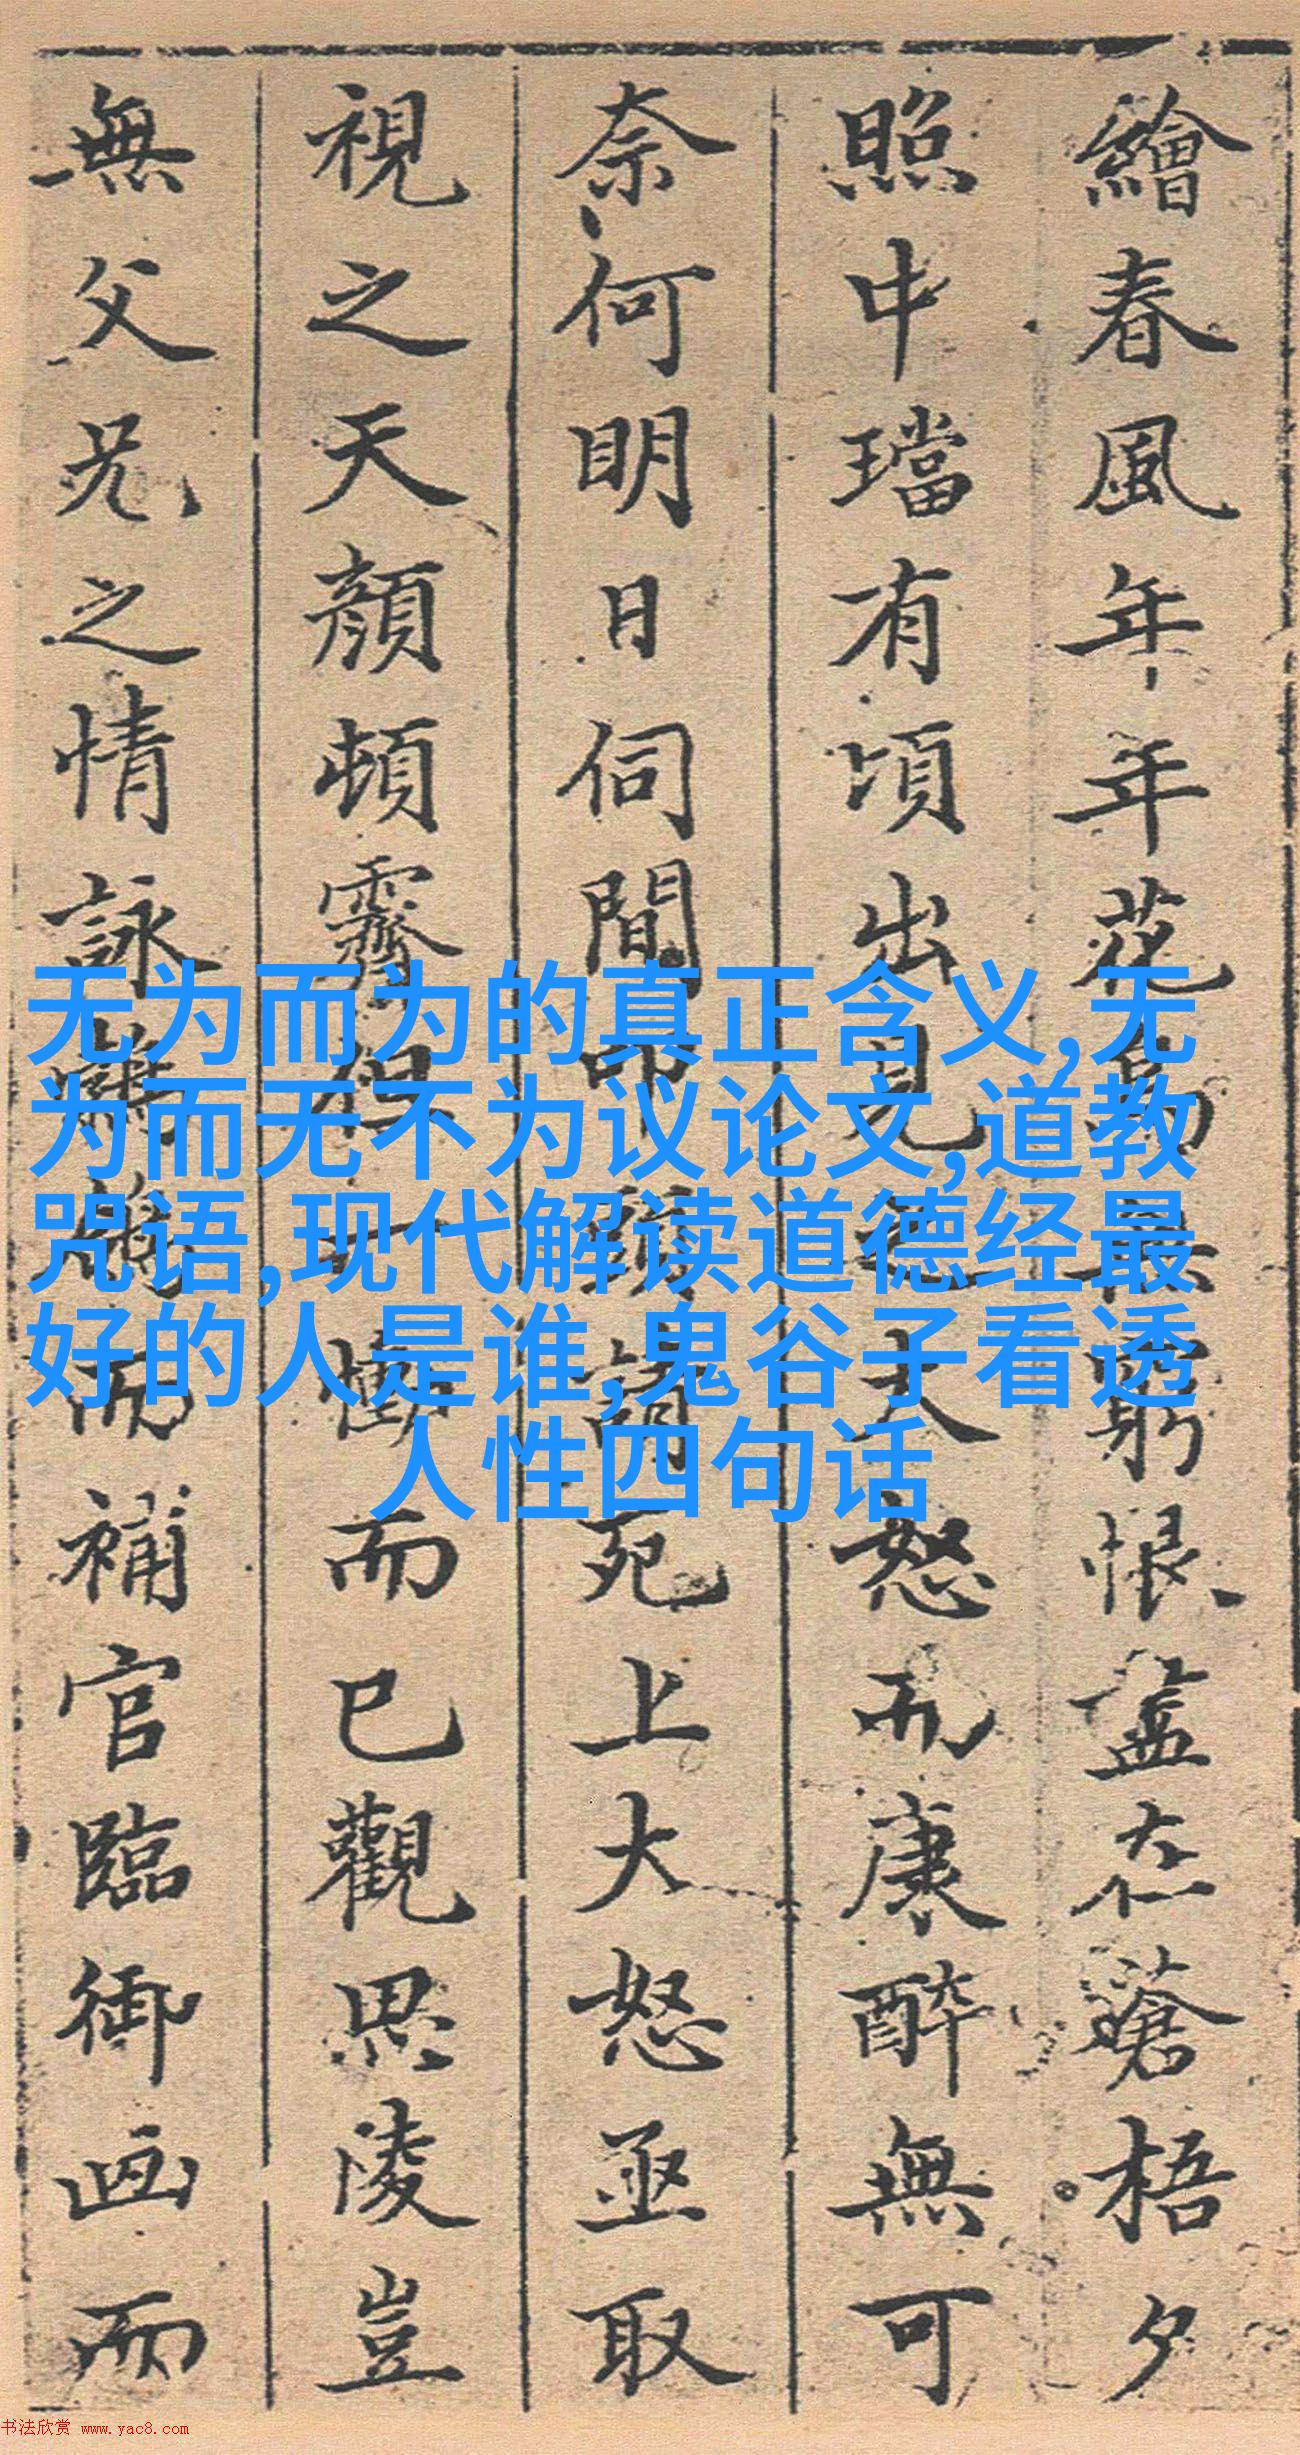 繪春風年年花鳥無窮恨盡在蒼梧夕
照中璫有頃出見之大怒而康醉無可
奈何明日伺間叩頭請死上大怒亟取
視之天顏頓霽但一慟而已觀思陵豈
無父兄之情詠而補官臨御画而
无为而为的真正含义,无
为而无不为议论文,道教
咒语,现代解读道德经最
好的人是谁,鬼谷子看透
人性四句话
书法欣赏 www.yac8.com